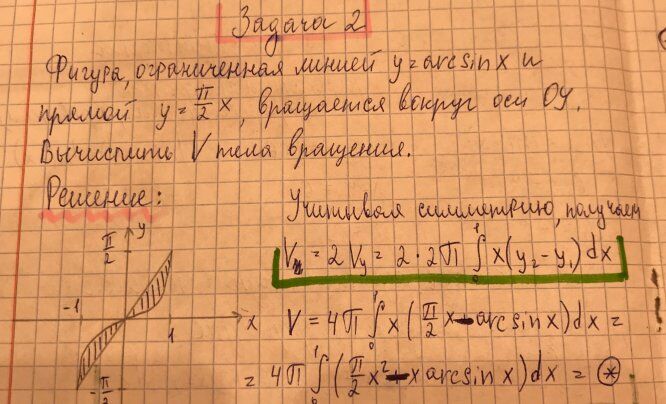 Задача 2
Фигура, ограниченная линией y = arcsin x и
прямой y = π/2 x, вращается вокруг оси OY.
Вычислить V тела вращения.
Решение:
Учитывая симметрию, получаем
V = 2 Vy = 2 · 2π ∫₀¹ x(y₂ - y₁) dx
y
π/2
-1
1
x
-π/2
V = 4π ∫₀¹ x(π/2 x - arcsin x) dx =
= 4π ∫₀¹ (π/2 x² - x arcsin x) dx = (*)